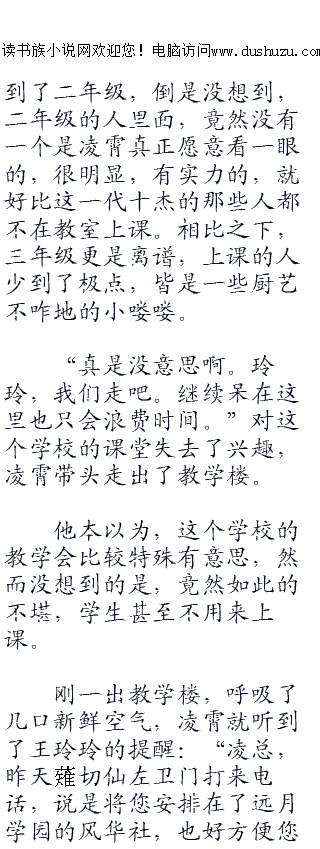 读书族小说网欢迎您！电脑访问www.dushuzu.com
到了二年级，倒是没想到，
二年级的人里面，竟然没有
一个是凌霄真正愿意看一眼
的，很明显，有实力的，就
好比这一代十杰的那些人都
不在教室上课。相比之下，
三年级更是离谱，上课的人
少到了极点，皆是一些厨艺
不咋地的小喽喽。
“真是没意思啊。玲
玲，我们走吧。继续呆在这
里也只会浪费时间。”对这
个学校的课堂失去了兴趣，
凌霄带头走出了教学楼。
他本以为，这个学校的
教学会比较特殊有意思，然
而没想到的是，竟然如此的
不堪，学生甚至不用来上
课。
刚一出教学楼，呼吸了
几口新鲜空气，凌霄就听到
了王玲玲的提醒：“凌总，
昨天薙切仙左卫门打来电
话，说是将您安排在了远月
学园的风华社，也好方便您